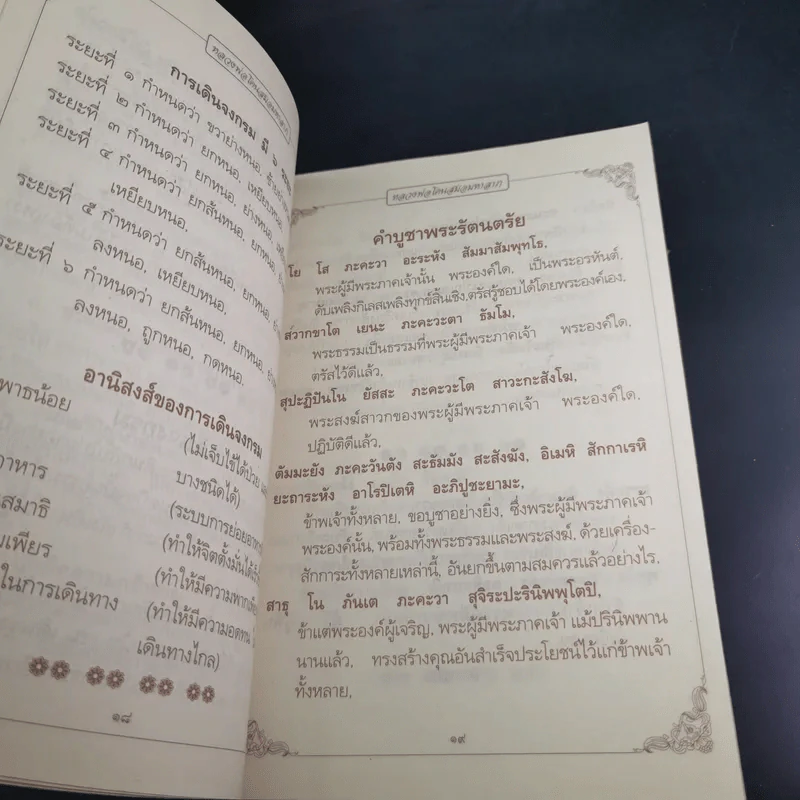 การเดินจงกรม มี ๖
ระยะที่ ๑ กำหนดว่า ขวาย่างหนอ,
ระยะที่ ๒ กำหนดว่า ยกหนอ, เหยียบหนอ
ระยะที่ ๓ กำหนดว่า ยกหนอ, ย่างหนอ,
ระยะที่ ๔ กำหนดว่า ยกส้นหนอ, ยกหนอ,
เหยียบหนอ.
ระยะที่ ๕ กำหนดว่า ยกส้นหนอ, ยกหนอ,
ลงหนอ, เหยียบหนอ.
ระยะที่ ๖ กำหนดว่า ยกส้นหนอ, ยกหนอ,
ลงหนอ, ถูกหนอ, กดหนอ.
อานิสงส์ของการเดินจงกรม
พาธน้อย (ไม่เจ็บไข้ได้ป่วย
บางชนิดได้)
อาหาร (ระบบการย่อยอาหาร
สมาธิ (ทำให้จิตตั้งมั่นได้
เพียร (ทำให้มีความพากเพียร
ในการเดินทาง (ทำให้มีความอดทน
เดินทางไกล)
๑๘
คำบูชาพระรัตนตรัย
โย โส ภะคะวา อะระหัง สัมมาสัมพุทโธ,
พระผู้มีพระภาคเจ้านั้น พระองค์ใด, เป็นพระอรหันต์,
ดับเพลิงกิเลสเพลิงทุกข์สิ้นเชิง,ตรัสรู้ชอบได้โดยพระองค์เอง,
ส๎วากขาโต เยนะ ภะคะวะตา ธัมโม,
พระธรรมเป็นธรรมที่พระผู้มีพระภาคเจ้า พระองค์ใด,
ตรัสไว้ดีแล้ว,
สุปะฏิปันโน ยัสสะ ภะคะวะโต สาวะกะสังโฆ,
พระสงฆ์สาวกของพระผู้มีพระภาคเจ้า พระองค์ใด,
ปฏิบัติดีแล้ว,
ตัมมะยัง ภะคะวันตัง สะธัมมัง สะสังฆัง, อิเมหิ สักกาเรหิ
ยะถาระหัง อาโรปิเตหิ อะภิปูชะยามะ,
ข้าพเจ้าทั้งหลาย, ขอบูชาอย่างยิ่ง, ซึ่งพระผู้มีพระภาคเจ้า
พระองค์นั้น, พร้อมทั้งพระธรรมและพระสงฆ์, ด้วยเครื่อง-
สักการะทั้งหลายเหล่านี้, อันยกขึ้นตามสมควรแล้วอย่างไร,
สาธุ โน ภันเต ภะคะวา สุจิระปะรินิพพุโตปิ,
ข้าแต่พระองค์ผู้เจริญ, พระผู้มีพระภาคเจ้า แม้ปรินิพพาน
นานแล้ว, ทรงสร้างคุณอันสำเร็จประโยชน์ไว้แก่ข้าพเจ้า
ทั้งหลาย,
๑๙